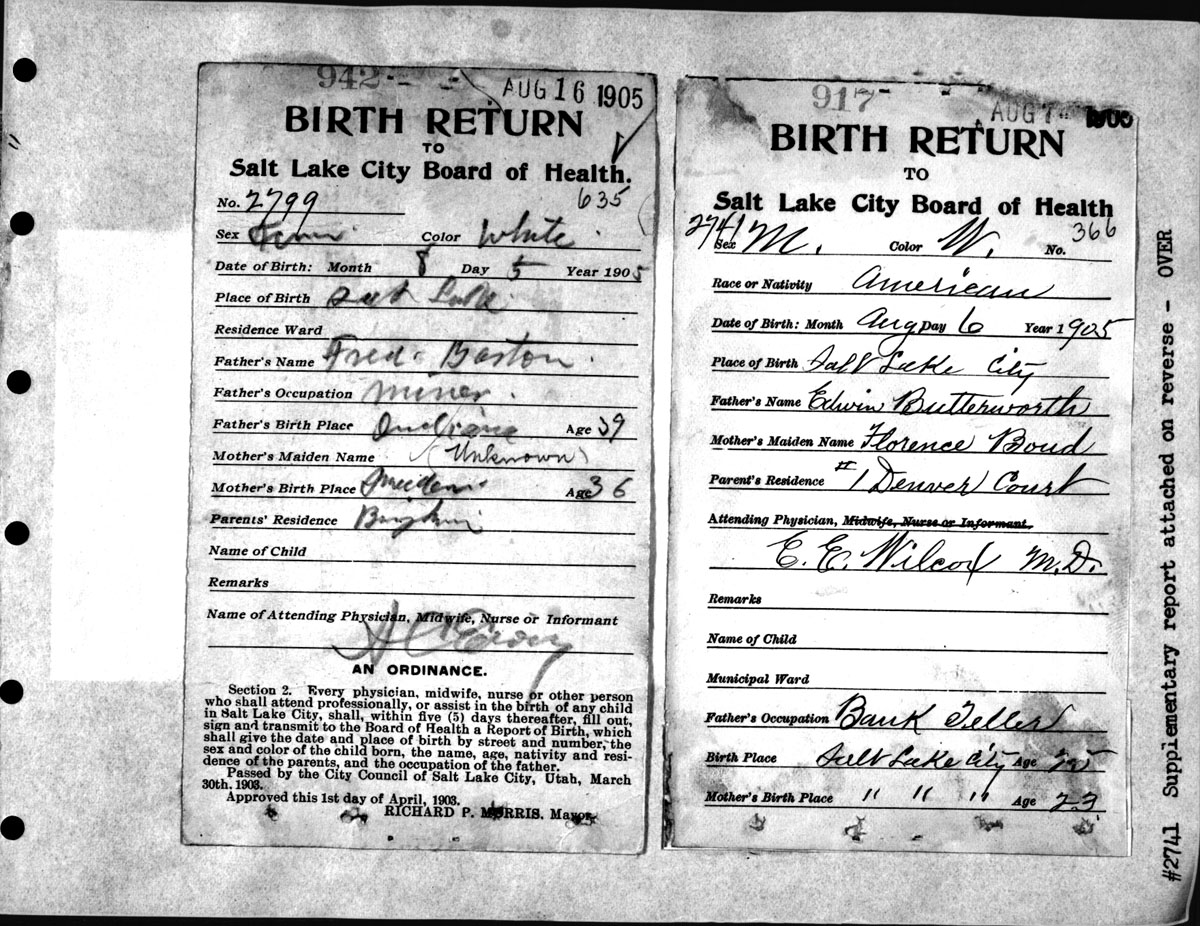 942
AUG 16 1905
BIRTH RETURN
TO
Salt Lake City Board of Health.
No. 2799 635
Sex Fem. Color White.
Date of Birth: Month 8 Day 5 Year 1905
Place of Birth Salt Lake.
Residence Ward
Father's Name Fred. Barton.
Father's Occupation Miner.
Father's Birth Place Indiana Age 39
Mother's Maiden Name (Unknown)
Mother's Birth Place Sweden Age 36
Parents' Residence
Name of Child
Remarks
Name of Attending Physician, Midwife, Nurse or Informant
AN ORDINANCE.
Section 2. Every physician, midwife, nurse or other person
who shall attend professionally, or assist in the birth of any child
in Salt Lake City, shall, within five (5) days thereafter, fill out,
sign and transmit to the Board of Health a Report of Birth, which
shall give the date and place of birth by street and number, the
sex and color of the child born, the name, age, nativity and resi-
dence of the parents, and the occupation of the father.
Passed by the City Council of Salt Lake City, Utah, March
30th. 1903.
Approved this 1st day of April, 1903.
RICHARD P. MORRIS. Mayor
917
AUG 7 1905
BIRTH RETURN
TO
Salt Lake City Board of Health
2741 366
Sex M. Color W. No.
Race or Nativity American
Date of Birth: Month Aug Day 6 Year 1905
Place of Birth Salt Lake City
Father's Name Edwin Butterworth
Mother's Maiden Name Florence Bond
Parent's Residence #1 Denver Court
Attending Physician, Midwife, Nurse or Informant.
E. E. Wilcox M.D.
Remarks
Name of Child
Municipal Ward
Father's Occupation Bank Teller
Birth Place Salt Lake City Age
Mother's Birth Place " " " Age 23
#2741 Supplementary report attached on reverse - OVER